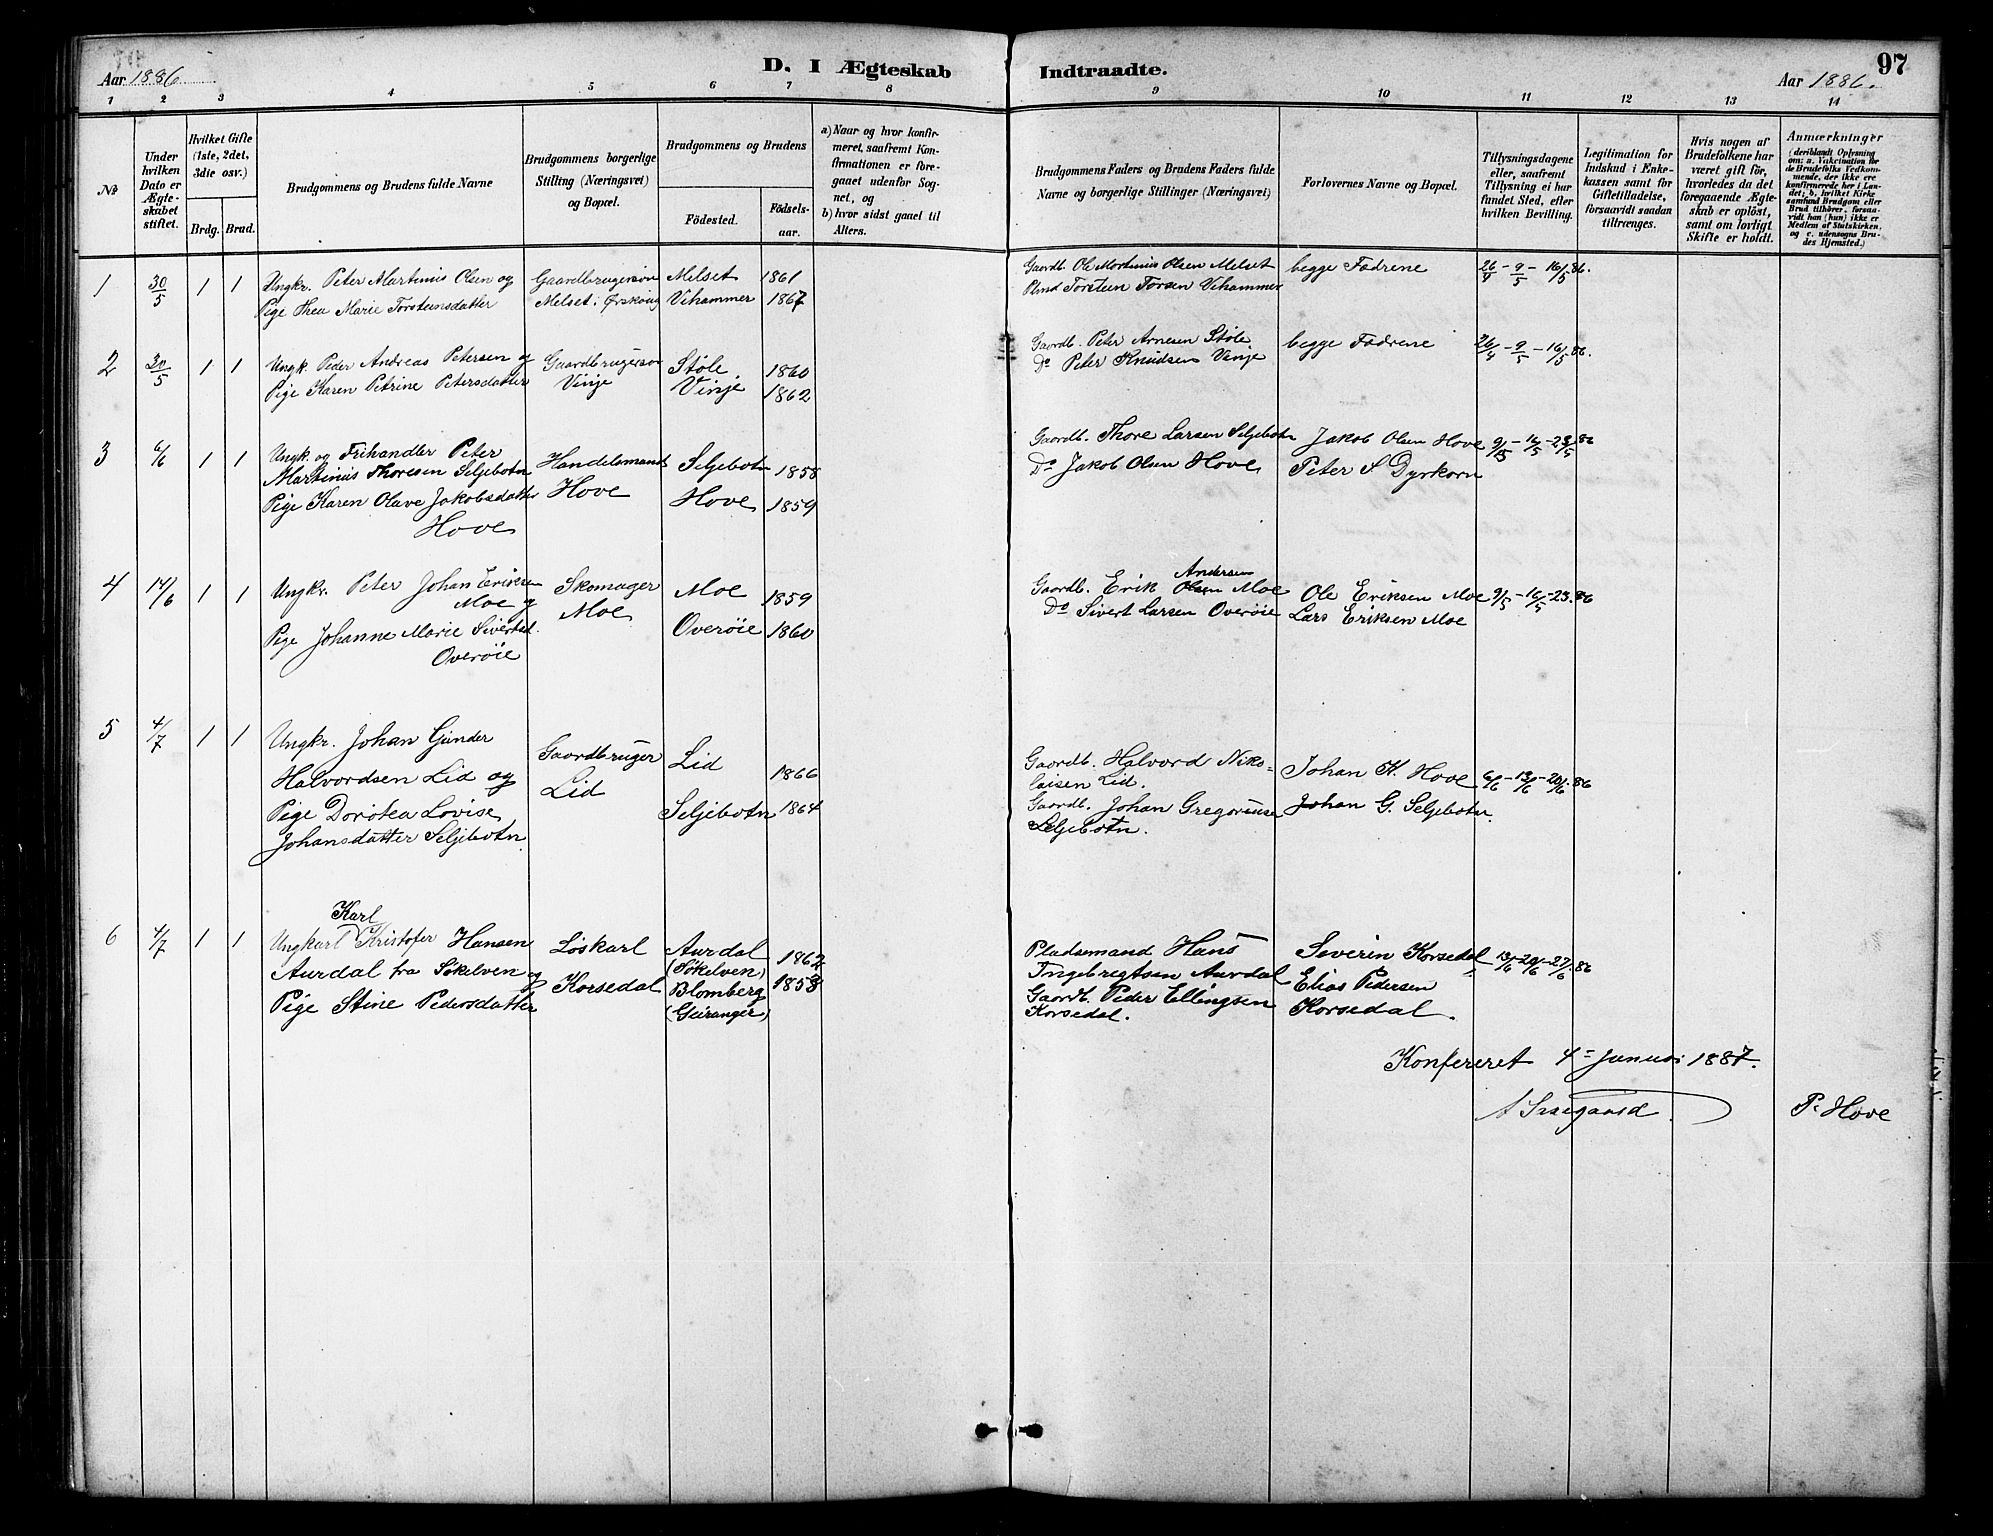 97
D. I Ægteskab Indtraadte.
Aar 1886 Aar 1886.
1 2 3 4 5 6 7 8 9 10 11 12 13 14
№
Under hvilken Dato er Ægteskabet stiftet.
Hvilket Gifte (1ste, 2det, 3die osv.)
Brdg. Brud.
Brudgommens og Brudens fulde Navne
Brudgommens borgerlige Stilling (Næringsvei) og Bopæl.
Brudgommens og Brudens
Fødested. Fødselsaar.
a) Naar og hvor konfirmeret, saafremt Konfirmationen er foregaaet udenfor Sognet, og
b) hvor sidst gaaet til Alters.
Brudgommens Faders og Brudens Faders fulde Navne og borgerlige Stillinger (Næringsvei)
Forlovernes Navne og Bopæl.
Tillysningsdagene eller, saafremt Tillysning ei har fundet Sted, efter hvilken Bevilling.
Legitimation for Indskud i Enkekassen samt for Giftetilladelse, forsaavidt saadan tiltrænges.
Hvis nogen af Brudefolkene har været gift før, hvorledes da det foregaaende Ægteskab er opløst, samt om lovligt Skifte er holdt.
Anmærkninger (deriblandt Oplysning om: a. Vakcination for de Brudefolks Vedkommende, der ikke ere konfirmerede her i Landet; b. hvilket Kirkesamfund Brudgom eller Brud tilhører, forsaavidt han (hun) ikke er Medlem af Statskirken, og c. udensogns Brudes Hjemsted.)
1 30/5 1 1 Ungkr. Peter Martinus Olsen og Gaardbrugersøn Melset 1861 Gaardb. Ole Martinus Olsen Melset begge Fædrene 26/4 - 9/5 - 16/5 86.
Pige Thea Marie Torsteinsdatter Melset i Ørskoug Vihammer 1867 Plmd Torstein Torsen Vihammer
2 30/5 1 1 Ungk. Peder Andreas Petersen og Gaardbrugersøn Støle 1860 Gaardb. Peter Arnesen Støle, begge Fædrene 26/4 - 9/5 - 16/5 86.
Pige Karen Petrine Petersdatter Vinje Vinje 1862 Do Peter Knudsen Vinje
3 6/6 1 1 Ungk. og Frihandler Peter Gaardb. Thore Larsen Seljebotn Jakob Olsen Hove 9/5 - 16/5 - 23/5 86
Martinus Thoresen Seljebotn Handelsmand Seljebotn 1858 Do Jakob Olsen Hove Peter S Dyrkorn
Pige Karen Olave Jakobsdatter Hove Hove 1859
Hove
4 14/6 1 1 Ungkr. Peter Johan Eriksen Skomager Moe 1859 Gaardb. Erik Andersen Olsen Moe Ole Eriksen Moe 9/5 - 16/5 - 23. 86
Moe og Moe Do Sivert Larsen Overøie Lars Eriksen Moe
Pige Johanne Marie Sivertsd. Overøie 1860
Overøie
5 4/7 1 1 Ungkr. Johan Gunder Gaardbruger Lid 1866 Gaardb. Halvord Niko- Johan K. Hove 6/6 - 13/6 - 20/6 86
Halvordsen Lid og Lid laisen Lid.
Pige Dorotea Lovise Seljebotn 1864 Gaardb. Johan Gregoriuse Johan G. Seljebotn.
Johansdatter Seljebotn. Seljebotn.
Karl
6 4/7 1 1 Ungkarl Kristofer Hansen Løskarl Aurdal 1862 Pladsemand Hans Severin Korsedal 13/6 - 20/6 - 27/6 86
Aurdal fra Søkelven og Korsedal (Søkelven) Ingebregtsen Aurdal Elias Pedersen
Pige Stine Pedersdatter Blomberg 1858 Gaardb. Peder Ellingsen Korsedal.
(Geiranger) Korsedal.
Konfereret 4 Januar 1887.
P. Hove